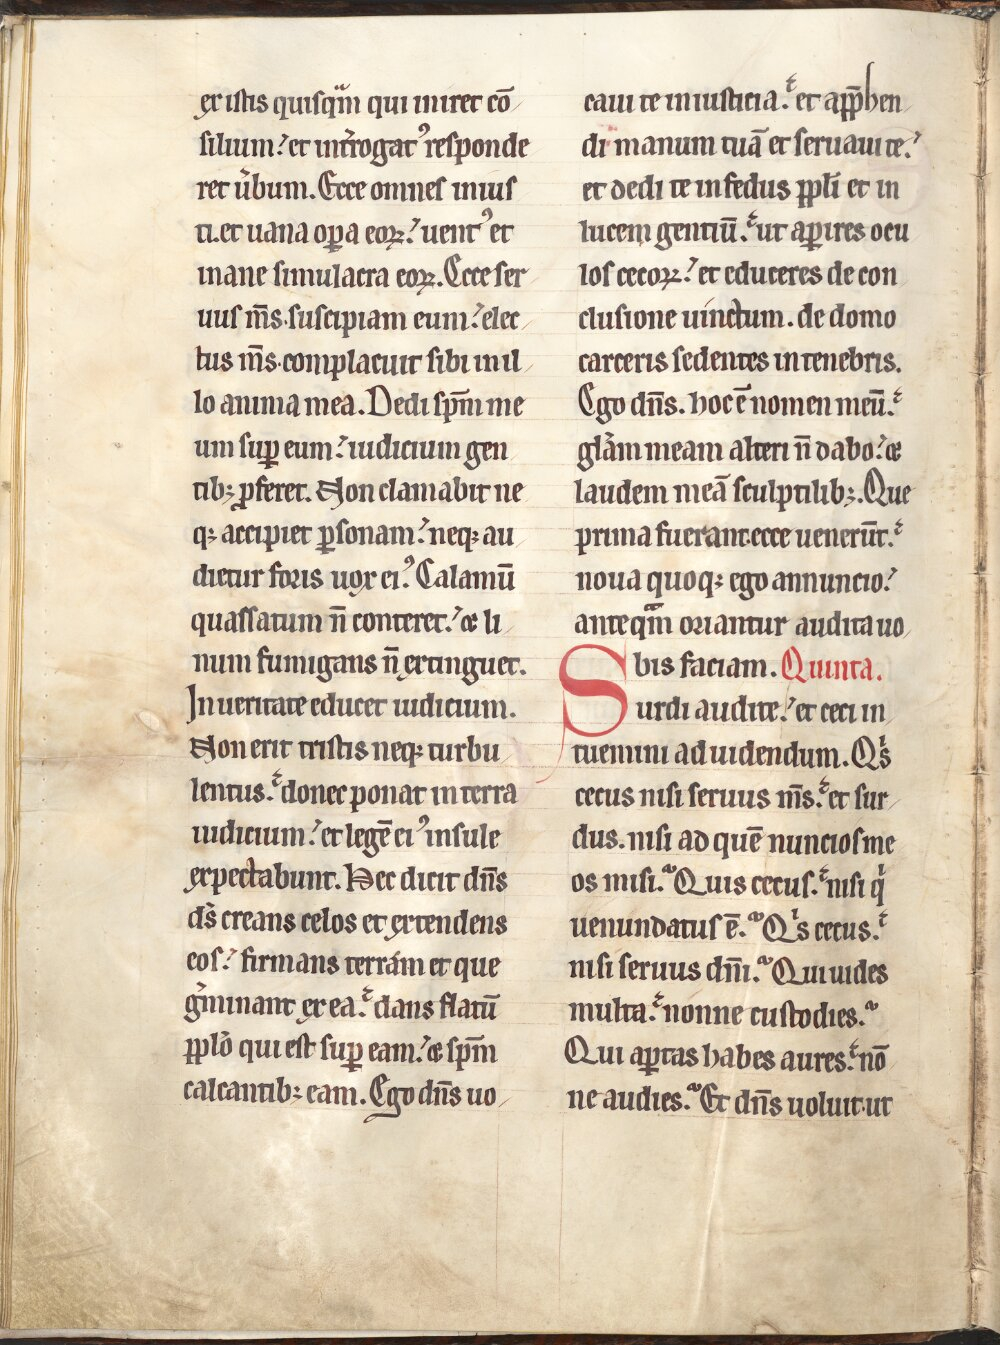 ex istis quisqᷓm qui iniret cō
silium. et int͛rogatꝰ responde
ret u͛bum. Ecce omnes inius
ti. et uana oꝑa eoꝝ. uentꝰ et
inane simulacra eoꝝ. Ecce ser
uus m̅s. suscipiam eum. elec
tus m̅s. complacuit sibi in il
lo anima mea. Dedi sp̅m me
um suꝑ eum. iudicium gen
tibꝫ ꝓferet. Non clamabit ne
qꝫ accipiet ꝑsonam. neqꝫ au
dietur foris uox eiꝰ. Calamū
quassatum n̅ conteret. ⁊ li
num fumigans n̅ extinguet.
In ueritate educet iudicium.
Non erit tristis neqꝫ turbu
lentus. donec ponat in terra
iudicium. et legē eiꝰ insule
expectabunt. Hec dicit dn̅s
ds̅ creans celos et extendens
eos. firmans terrám et que
g͛minant ex ea. dans flatū
pplo̅ qui est suꝑ eam. ⁊ sp̅m
calcantibꝫ eam. Ego dn̅s uo
caui te in iusticia. et app̅hen
di manum tuā et seruaui te.
et dedi te in fedus ppl̅i et in
lucem gentiū. ut aꝑires ocu
los cecoꝝ. et educeres de con
clusione uinctum. de domo
carceris sedentes in tenebris.
Ego dn̅s. hoc ē nomen meū.
gl̅am meam alteri n̅ dabo. ⁊
laudem meā sculptilibꝫ. Que
prima fuerant. ecce uenerūt.
noua quoqꝫ ego annuncio.
anteqᷓm oriantur audita uo
bis faciam. Quinta.
Surdi audite. et ceci in
tuemini ad uidendum. Qͥs
cecus nisi seruus m̅s. et sur
dus. nisi ad quē nuncios me
os misi. Quis cecus. nisi qͥ
uenundatus ē. Qͥs cecus.
nisi seruus dn̅i. Qui uides
multa. nonne custodies.
Qui aꝑtas habes aures. nō
ne audies. Et dn̅s uoluit. ut